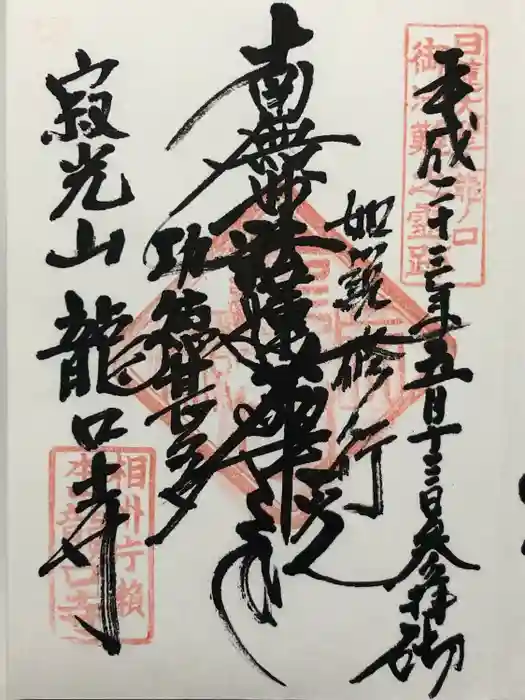 平成二十三年五月十三日参拝
如説修行
南無妙法蓮華経
功徳甚多
寂光山 龍口寺
日蓮大聖人龍ノ口
御法難之霊跡
相州片瀬
本龍口寺